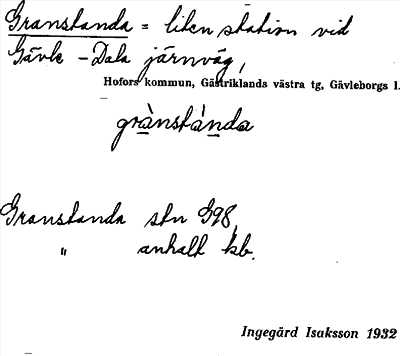 Granstanda = liten station vid
Gävle - Dala järnväg,
Hofors kommun, Gästriklands västra tg, Gävleborgs l.
grànstànda
Granstanda stn G98,
" anhalt kb.
Ingegärd Isaksson 1932